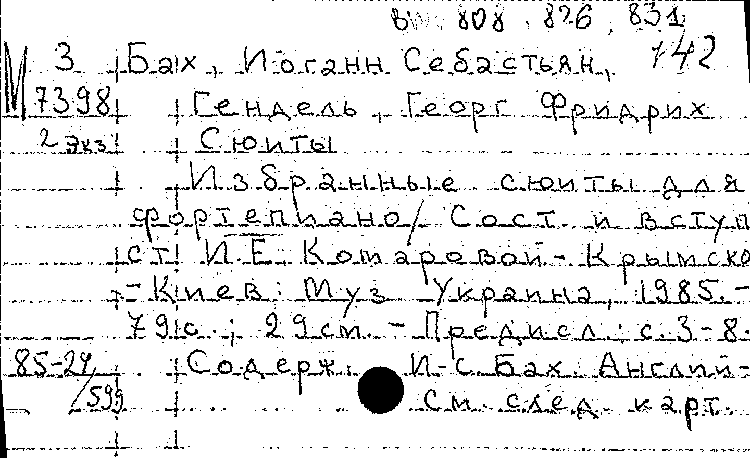 BWV 808, 826, 831
3 Бах, Иоганн Себастьян, 142
М 7398 Гендель, Георг Фридрих
2 экз Сюиты
Избранные сюиты для
фортепиано / Сост. и вступ
ст. И.Е. Комаровой-Крымско
- Киев: Муз Украина, 1985. -
79 с.; 29 см. - Предисл.: с. 3-8.
85-29/599 Содерж.: И-С. Бах. Англий-
См. след. карт.